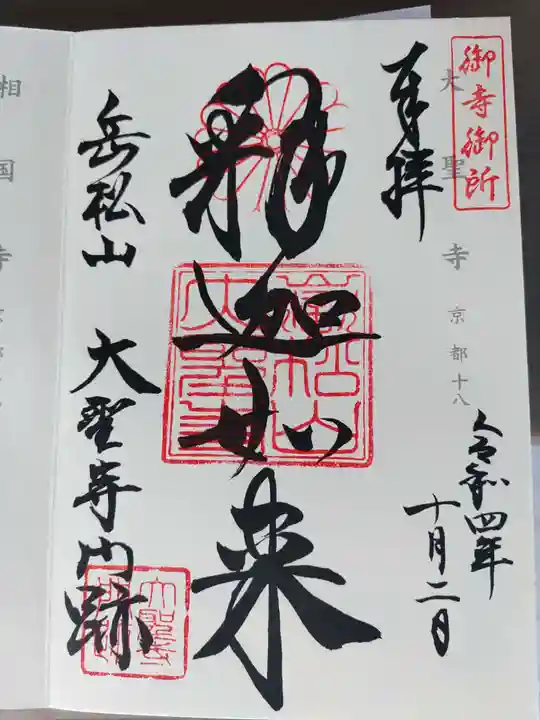 御寺御所
大聖寺 京都十八
奉拝
令和四年
十月二日
釋迦如来
岳松山 大聖寺門跡
相国寺